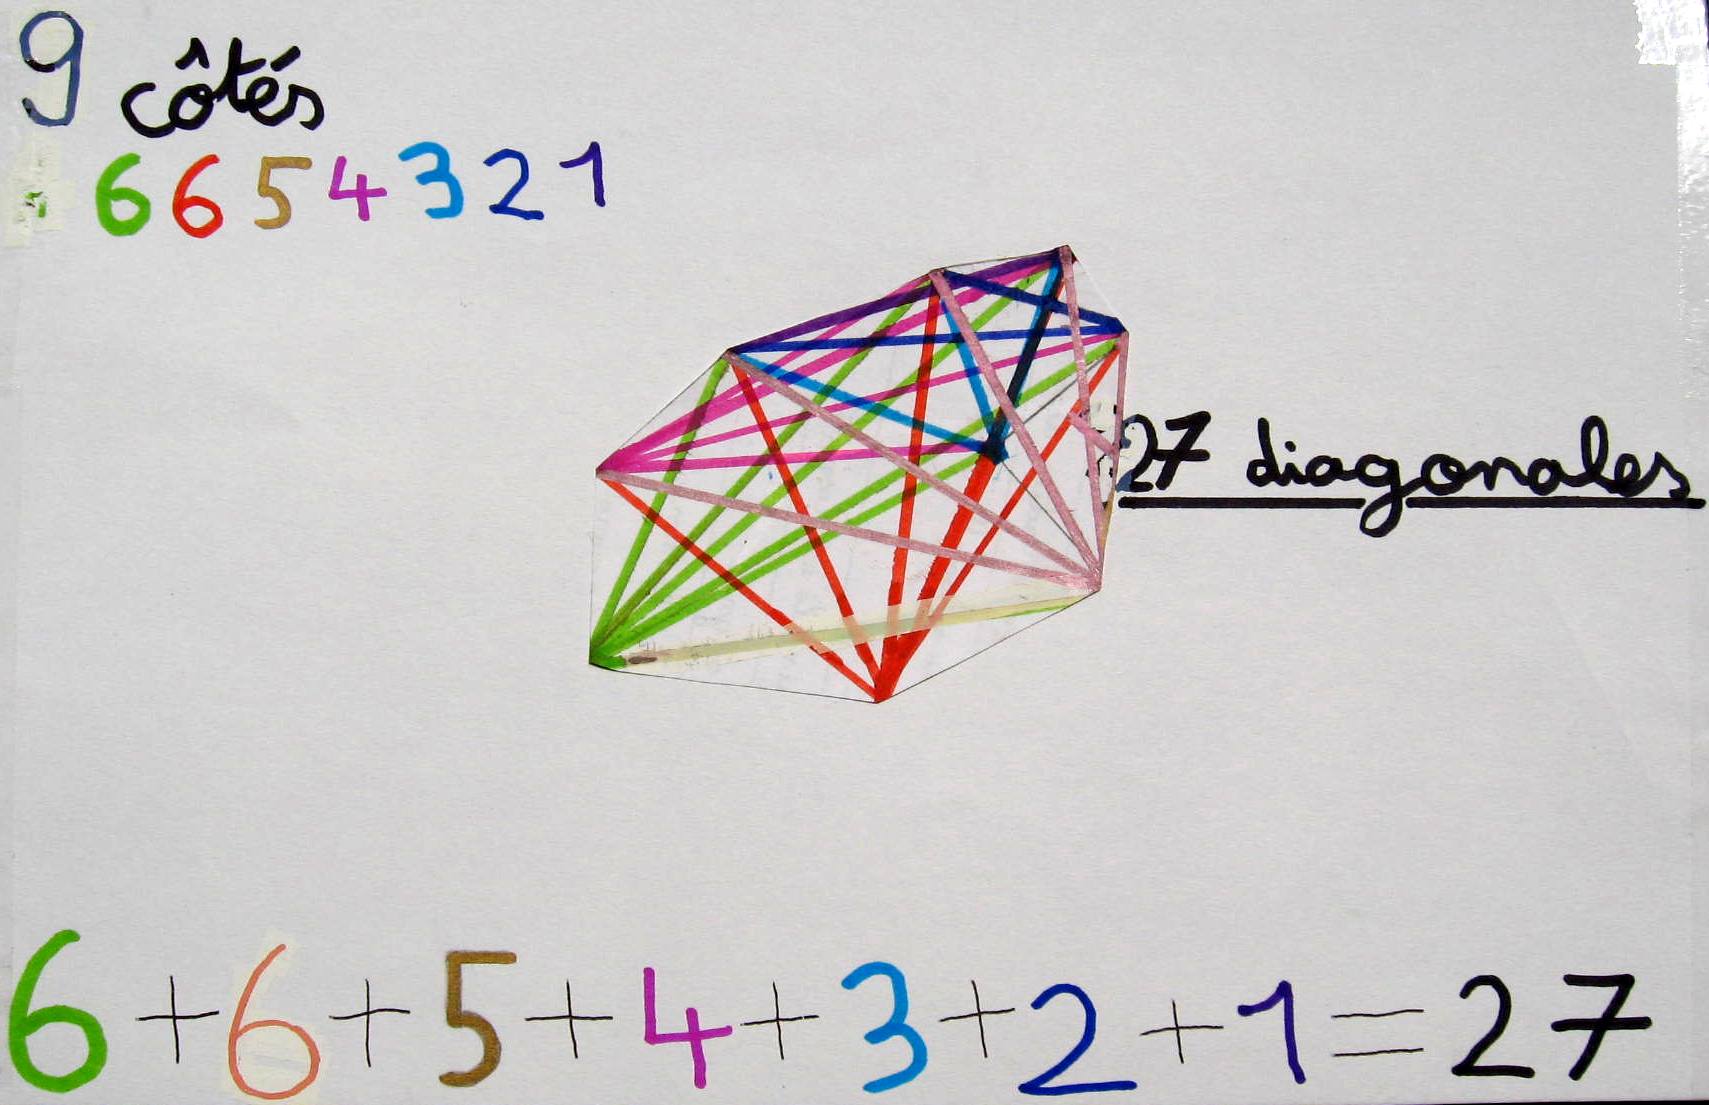 9 côtés
6 6 5 4 3 2 1
27 diagonales
6 + 6 + 5 + 4 + 3 + 2 + 1 = 27